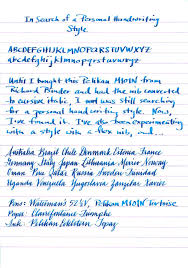 In Search of a Personal Handwriting
Style
ABCDEFGHIJKLMNOPQRSTUVWXYZ
abcdefghijklmnopqrstuvwxyz
Until I bought this Pelikan M101N from
Richard Binder and had the nib converted
to cursive italic, I was still searching
for a personal handwriting style. Now,
I've found it. I've also been experimenting
with a style with a flex nib, and...
Australia Brazil Chile Denmark Estonia France
Germany Italy Japan Lithuania Mexico Norway
Oman Peru Qatar Russia Sweden Trinidad
Uganda Venezuela Yugoslavia
Pens: Waterman's 52V, Pelikan M101N Tortoise
Paper: Clairefontaine Triomphe
Ink: Pelikan Edelstein Topaz